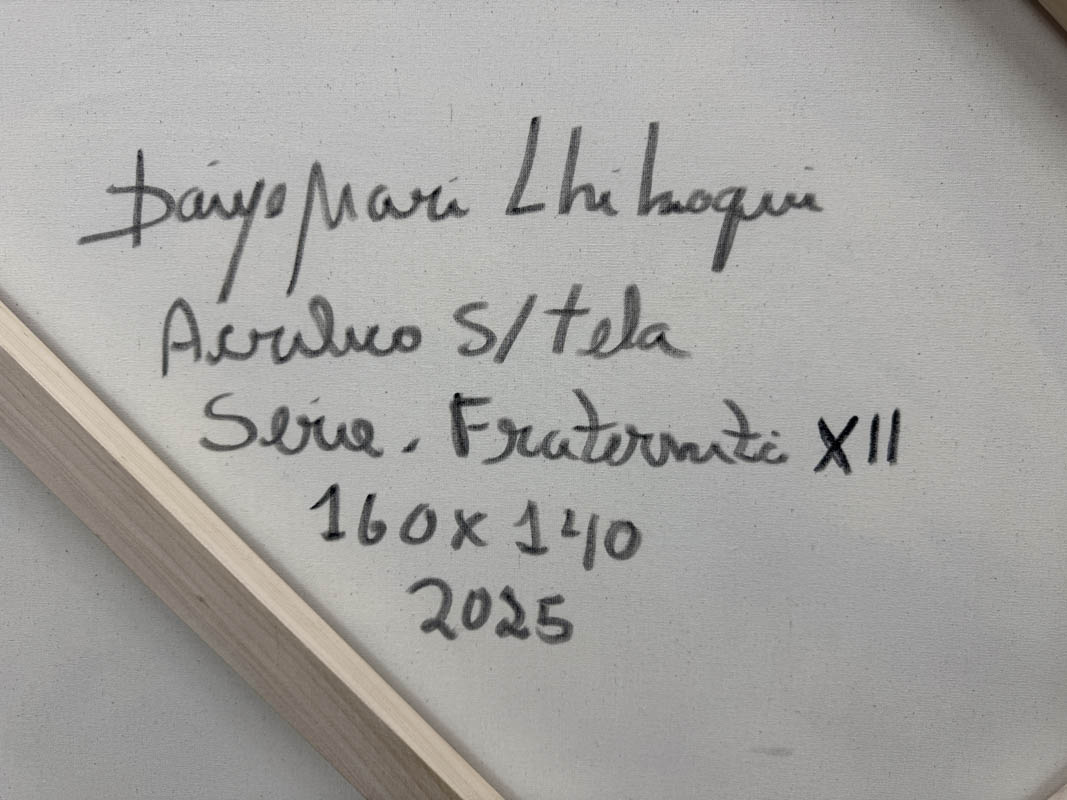 Daiyo Mari Chibaoqui
Acrilico S/tela
Serie. Fraternité XII
160x140
2025